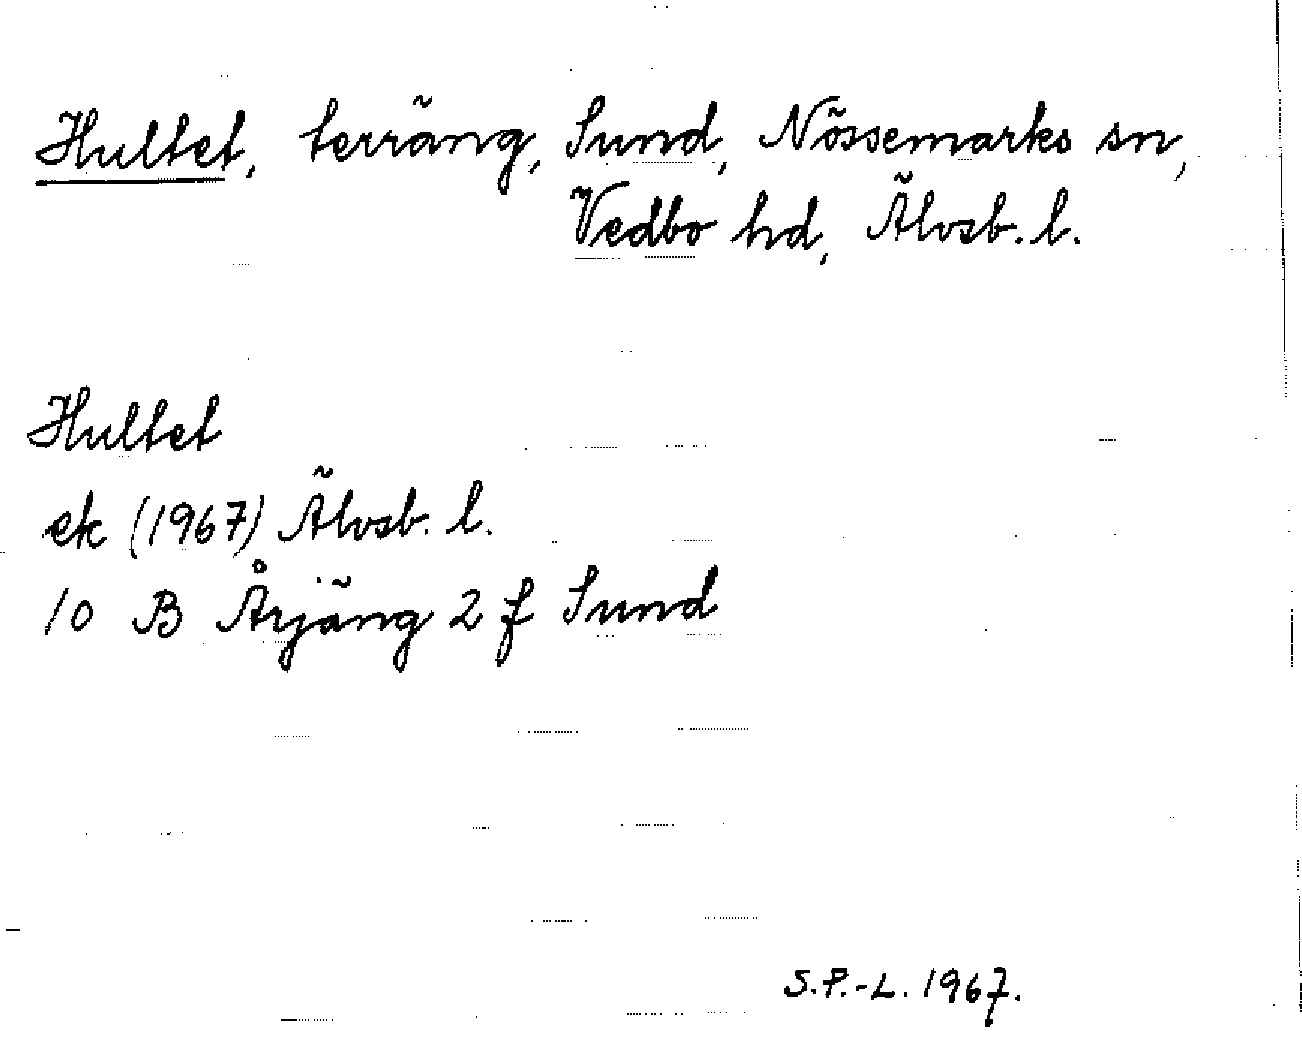 Hultet, terräng, Sund, Nössemarks sn,
Vedbo hd, Älvsb. l.
Hultet
ek (1967) Älvsb. l.
10 B Årjäng 2 f Sund
S.P.-L. 1967.